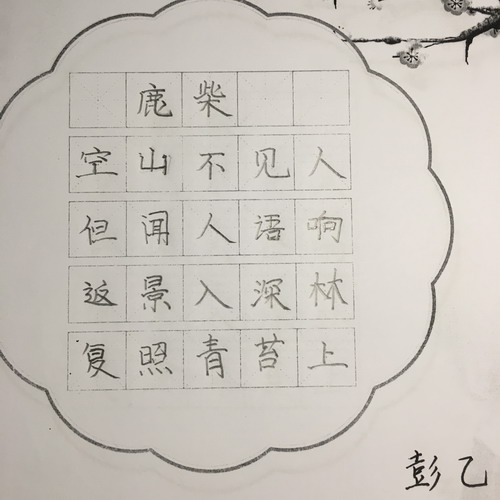 鹿柴
空山不见人
但闻人语响
返景入深林
复照青苔上
彭乙